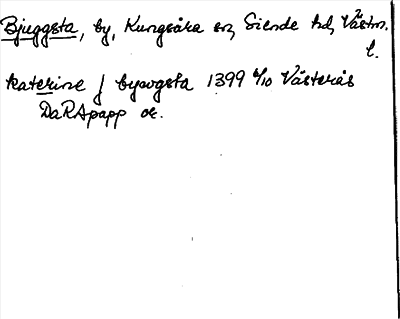 Bjuggsta, by, Kungsåra sn, Siende hd, Västm.
l.
katerine j bysogsta 1399 6/10 Västerås
DaRApapp or.